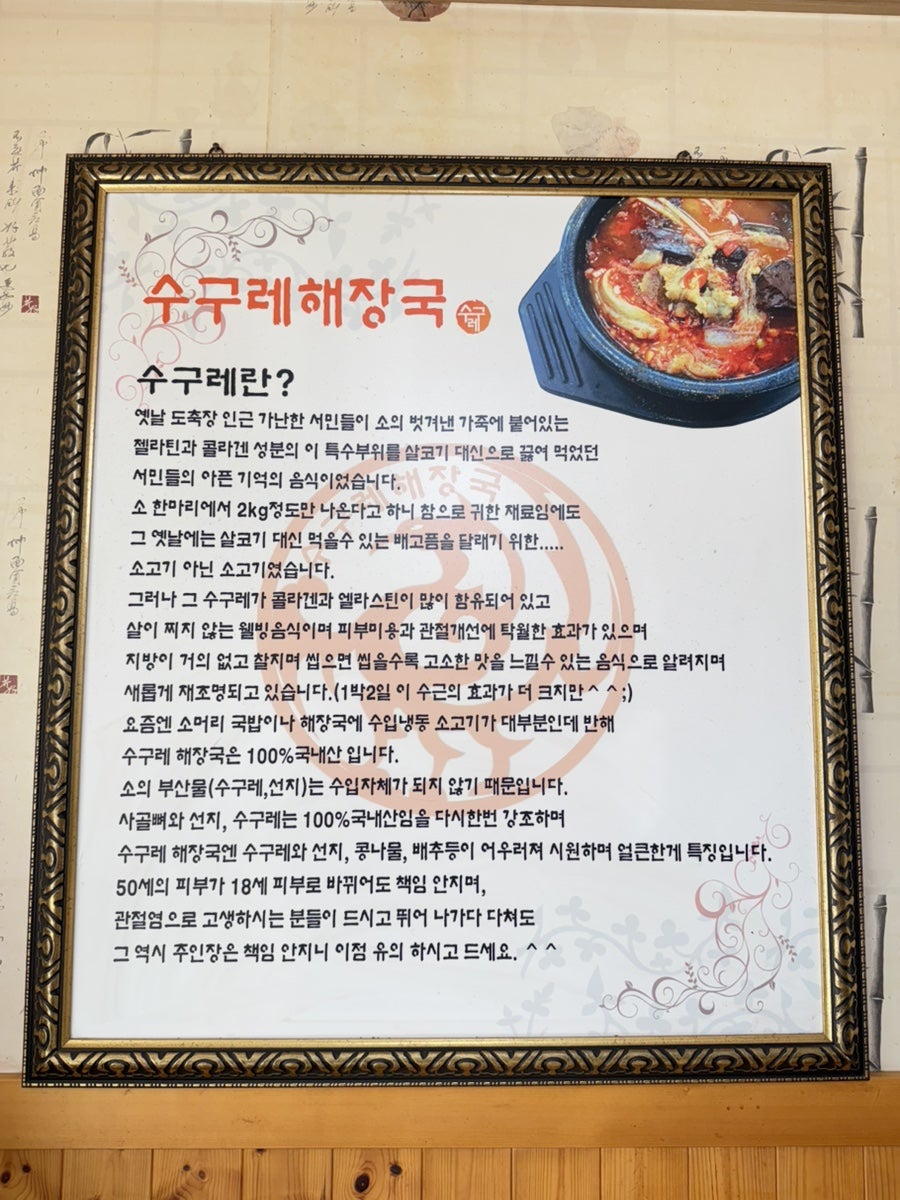 수구레해장국
수구레
수구레란?
옛날 도축장 인근 가난한 서민들이 소의 벗겨낸 가죽에 붙어있는
젤라틴과 콜라겐 성분의 이 특수부위를 살코기 대신으로 끓여 먹었던
서민들의 아픈 기억의 음식이었습니다.
소 한마리에서 2kg정도만 나온다고 하니 참으로 귀한 재료임에도
그 옛날에는 살코기 대신 먹을수 있는 배고픔을 달래기 위한.....
소고기 아닌 소고기였습니다.
그러나 그 수구레가 콜라겐과 엘라스틴이 많이 함유되어 있고
살이 찌지 않는 웰빙음식이며 피부미용과 관절개선에 탁월한 효과가 있으며
지방이 거의 없고 찰지며 씹으면 씹을수록 고소한 맛을 느낄수 있는 음식으로 알려지며
새롭게 재조명되고 있습니다.(1박2일 이 수근의 효과가 더 크지만^ ^;)
요즘엔 소머리 국밥이나 해장국에 수입냉동 소고기가 대부분인데 반해
수구레 해장국은 100%국내산 입니다.
소의 부산물(수구레,선지)는 수입자체가 되지 않기 때문입니다.
사골뼈와 선지, 수구레는 100%국내산임을 다시한번 강조하며
수구레 해장국엔 수구레와 선지, 콩나물, 배추등이 어우러져 시원하며 얼큰한게 특징입니다.
50세의 피부가 18세 피부로 바뀌어도 책임 안지며,
관절염으로 고생하시는 분들이 드시고 뛰어 나가다 다쳐도
그 역시 주인장은 책임 안지니 이점 유의 하시고 드세요. ^ ^
수구레해장국